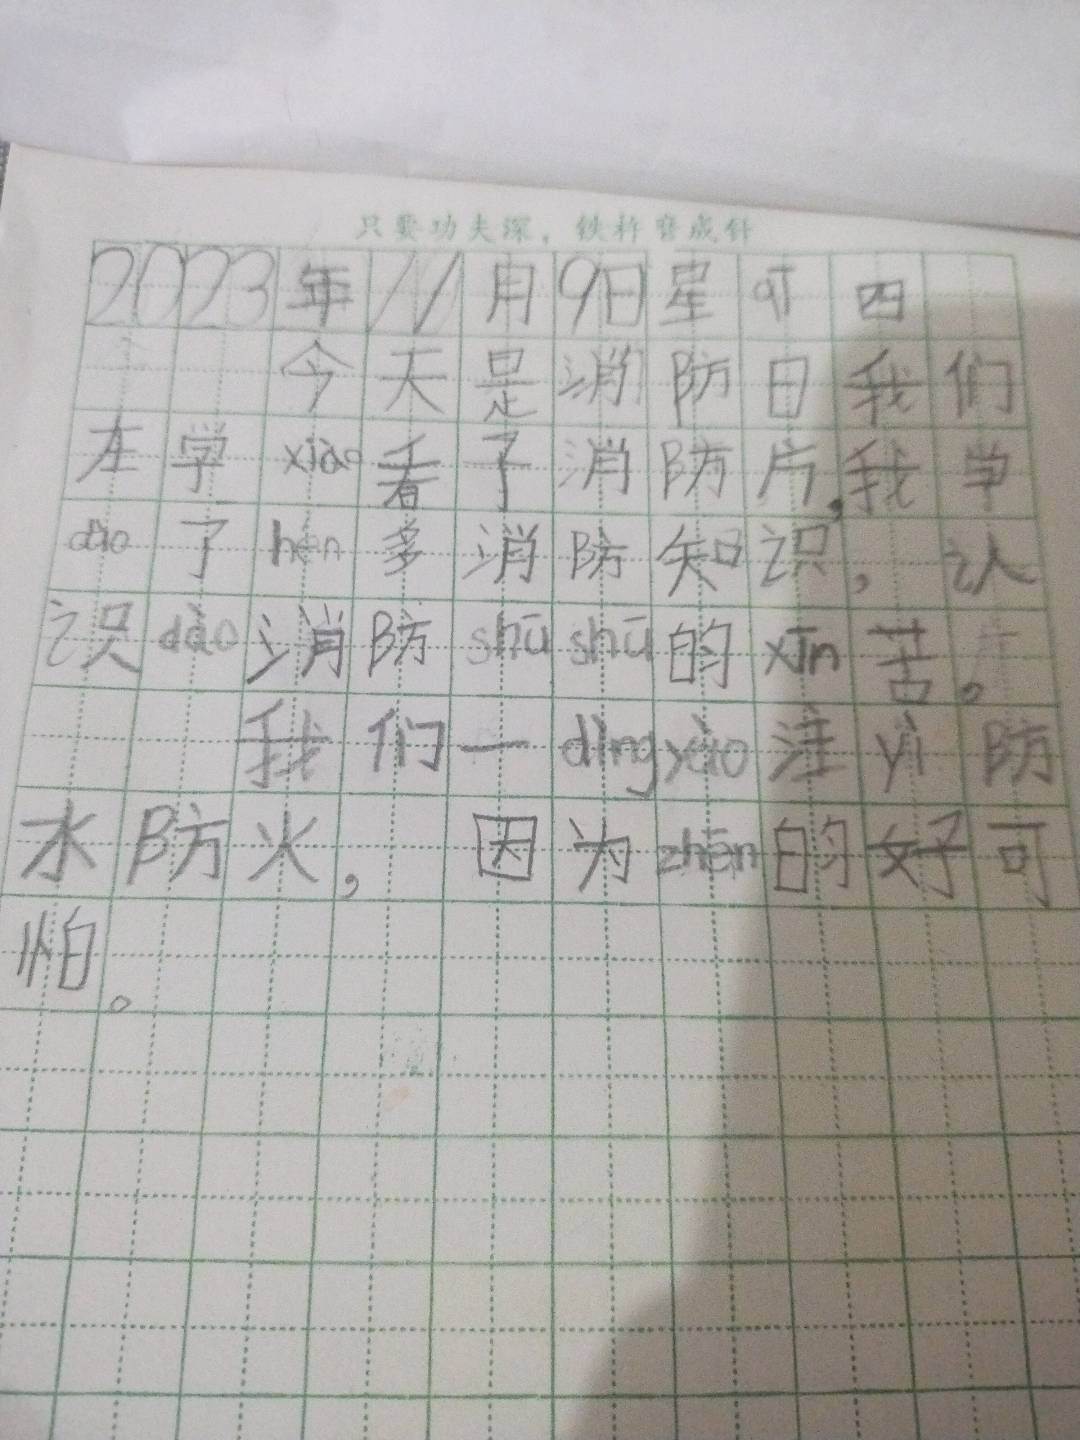 只要功夫深，铁杵磨成针
2023年11月9日星qī四
今天是消防日我们
在学xiào看了消防片,我学
dào了hěn多消防知识，认
识dào消防shūshū的xīn苦。
我们一dìngyào注yì防
水防火，因为zhēn的好可
怕。